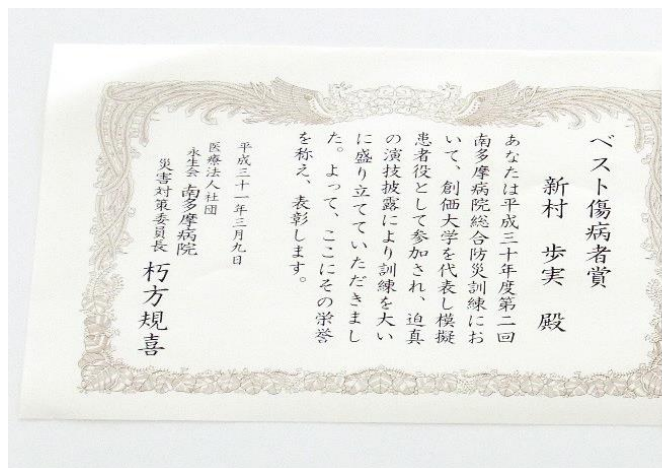 ベスト傷病者賞
新村 歩実 殿
あなたは平成三十年度第二回
南多摩病院総合防災訓練にお
いて、創価大学を代表し模擬
患者役として参加され、迫真
の演技披露により訓練を大い
に盛り立てていただきまし
た。よって、ここにその栄誉
を称え、表彰します。
平成三十一年三月九日
医療法人社団
永生会 南多摩病院
災害対策委員長 朽方規喜